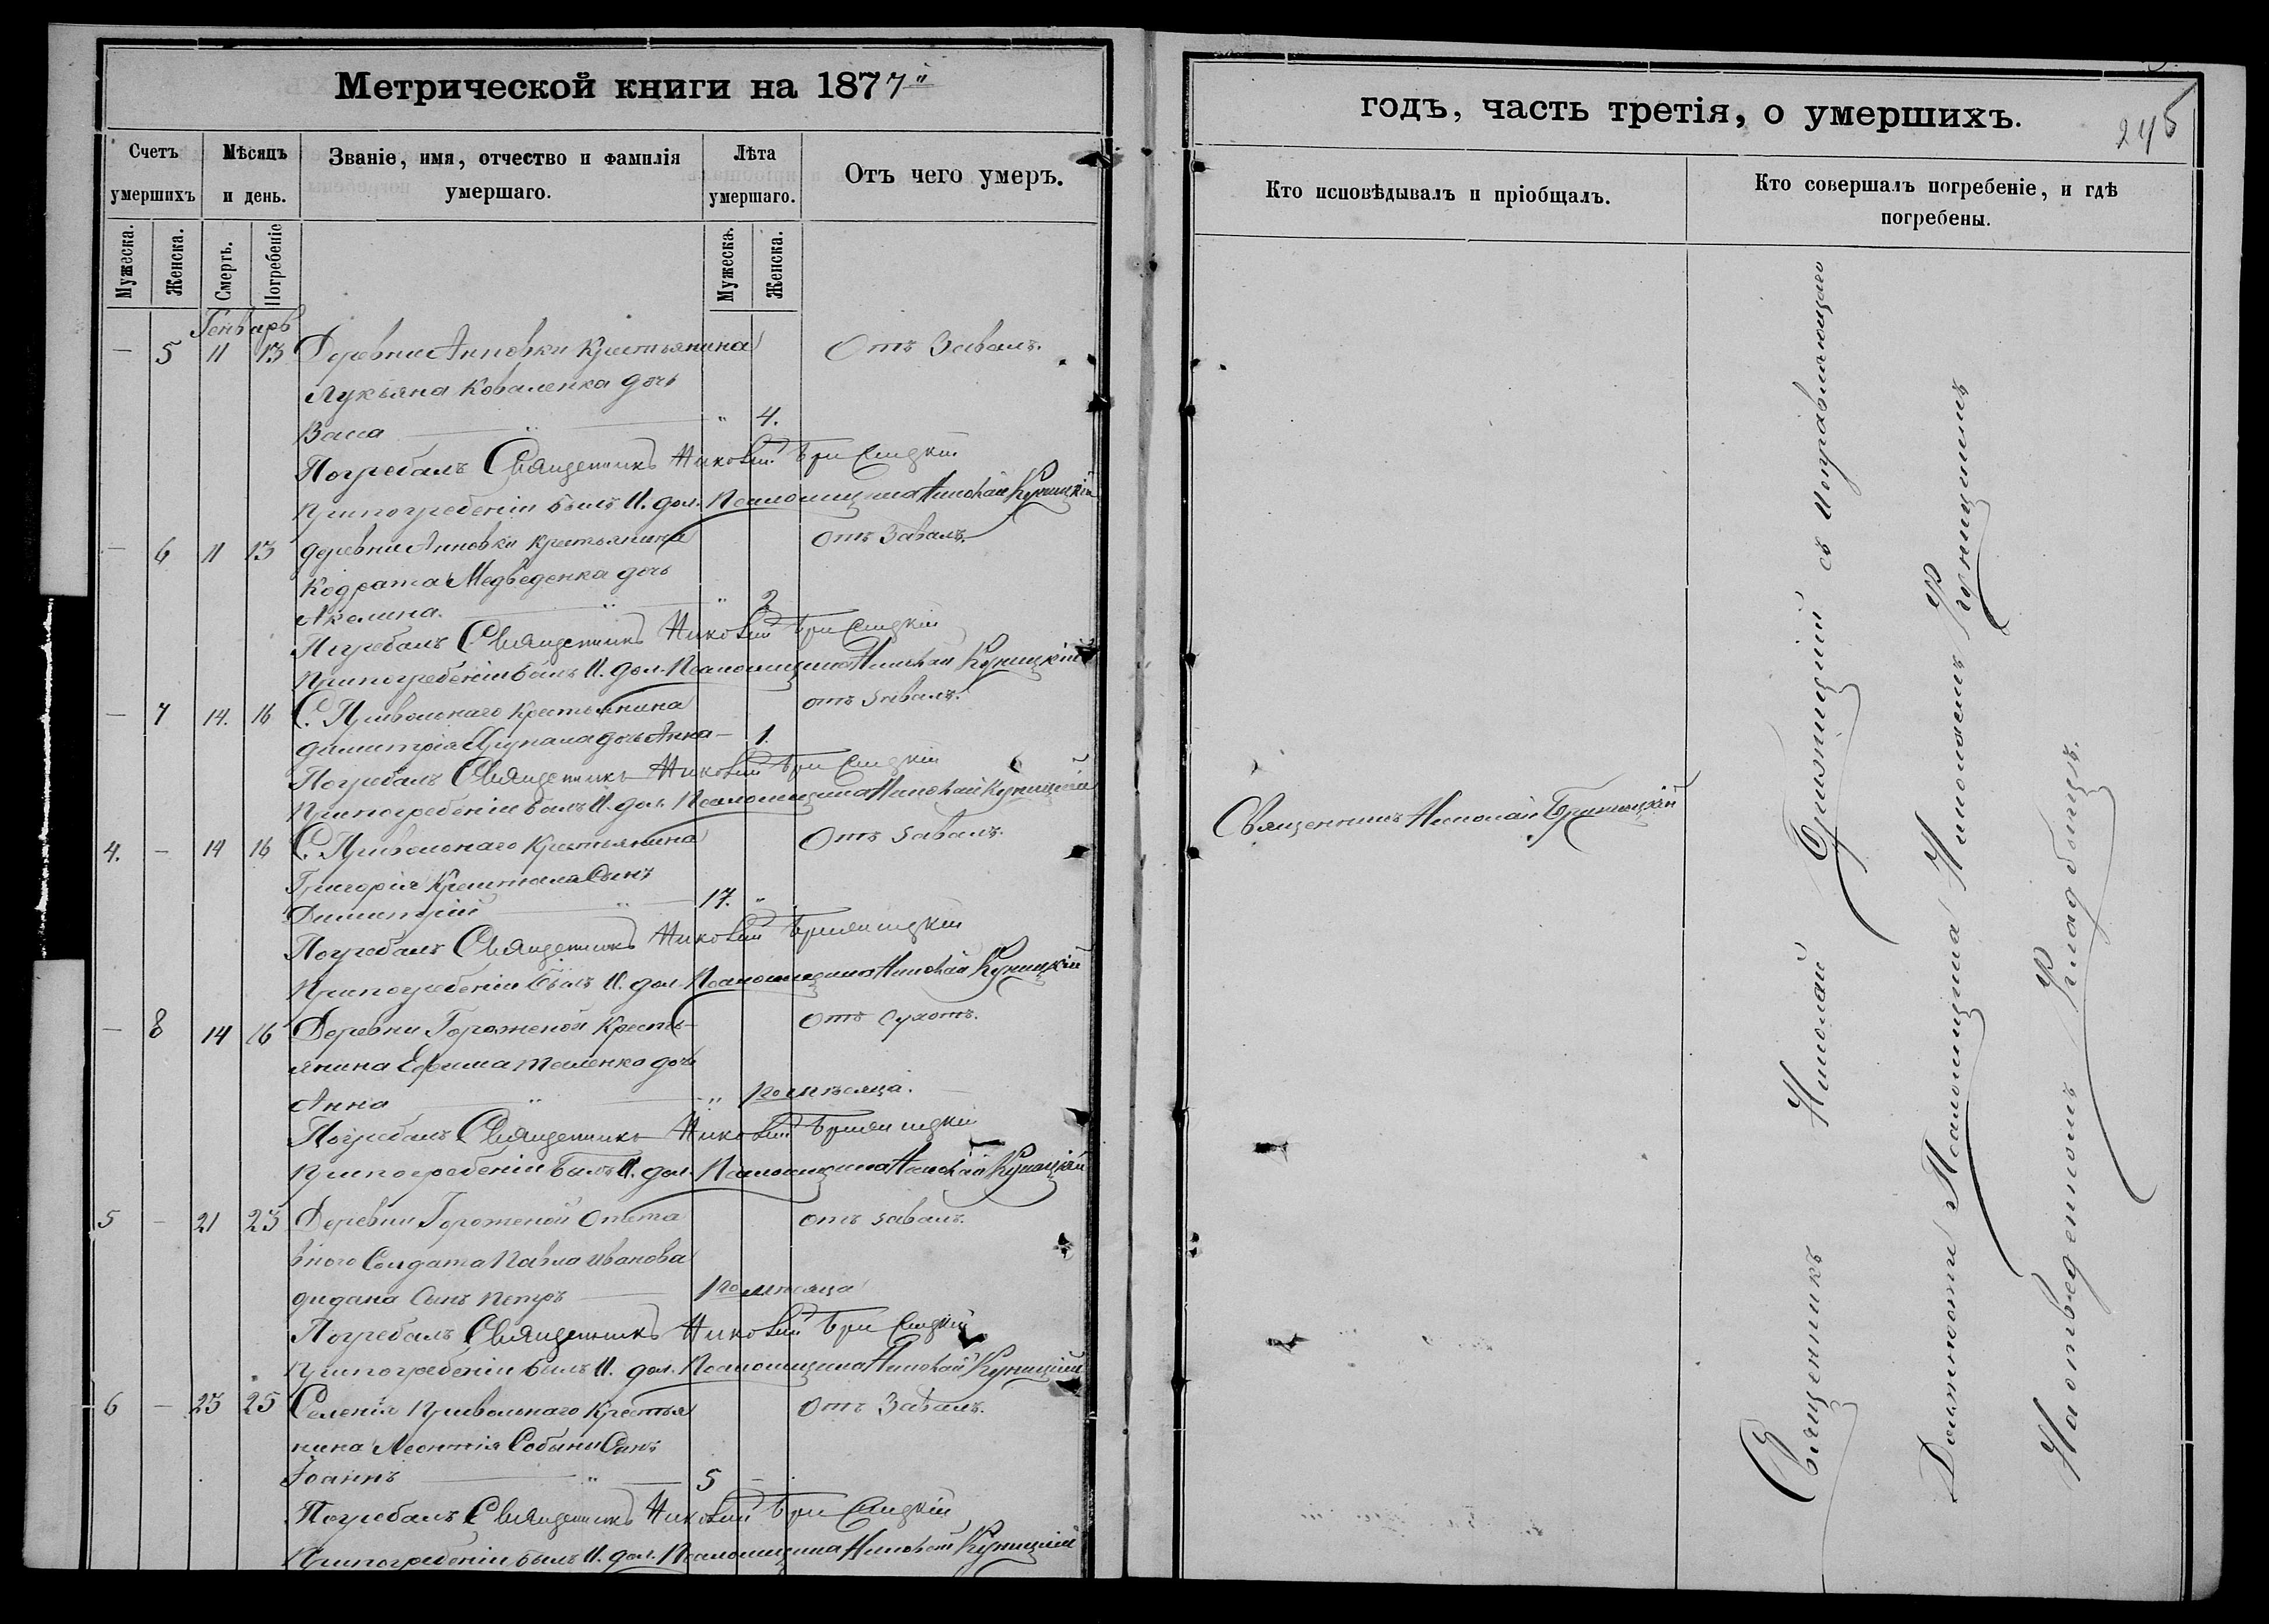 Метрической книги на 1877й
Счетъ умершихъ
Мѣсяцъ и день.
Званіе, имя, отчество и фамилія умершаго.
Лѣта умершаго.
Отъ чего умеръ.
Мужеска.
Женска.
Смерть.
Погребеніе
Мужеска.
Женска.
Генварь
— 5 11 13 Деревни Анновки Крестьянина Отъ Завалъ.
Лукьяна Коваленка дочь
Васса " 4.
Погребалъ Священникъ Николай
При погребеніи былъ И. дол. Псаломщика Николай Куницкій
— 6 11 13 деревни Анновки крестьянина Отъ Завалъ.
Кодрата Медведенка дочь
Акелина. " 2
Погребалъ Священникъ Николай
При погребеніи былъ И. дол. Псаломщика Николай Куницкій
— 7 14. 16 С. Привольнаго Крестьянина отъ завалъ.
димитрія дочь Анна — 1.
Погребалъ Священникъ Николай
При погребеніи былъ И. дол. Псаломщика Николай Куницкій
4. — 14 16 С. Привольнаго Крестьянина Отъ завалъ.
Григорія Сынъ
Димитрій " 17. "
Погребалъ Священникъ Николай
При погребеніи былъ И. дол. Псаломщика Николай Куницкій
— 8 14 16 Деревни Гороженой Кресть- Отъ сухотъ.
янина Ефима дочь
Анна " " мѣсяца.
Погребалъ Священникъ Николай
При погребеніи былъ И. дол. Псаломщика Николай Куницкій
5 — 21 23 Деревни Гороженой Отста отъ завалъ.
вного Солдата Павла Иванова
дидана Сынъ Петръ — мѣсяца
Погребалъ Священникъ Николай
При погребеніи былъ И. дол. Псаломщика Николай Куницкій
6 — 23 25 Селенія Привольнаго Крестья Отъ Завалъ.
нина Леонтія Собыни Сынъ
Іоаннъ " 5 —
Погребалъ Священникъ Николай
При погребеніи былъ И. дол. Псаломщика Николай Куницкій
годъ, часть третія, о умершихъ.
245
Кто исповѣдывалъ и пріобщалъ.
Кто совершалъ погребеніе, и гдѣ погребены.
Священникъ Николай
Священникъ Николай съ исправляющаго
Должность Псаломщика Николаемъ Куницкимъ
На отведенномъ Кладбищѣ.